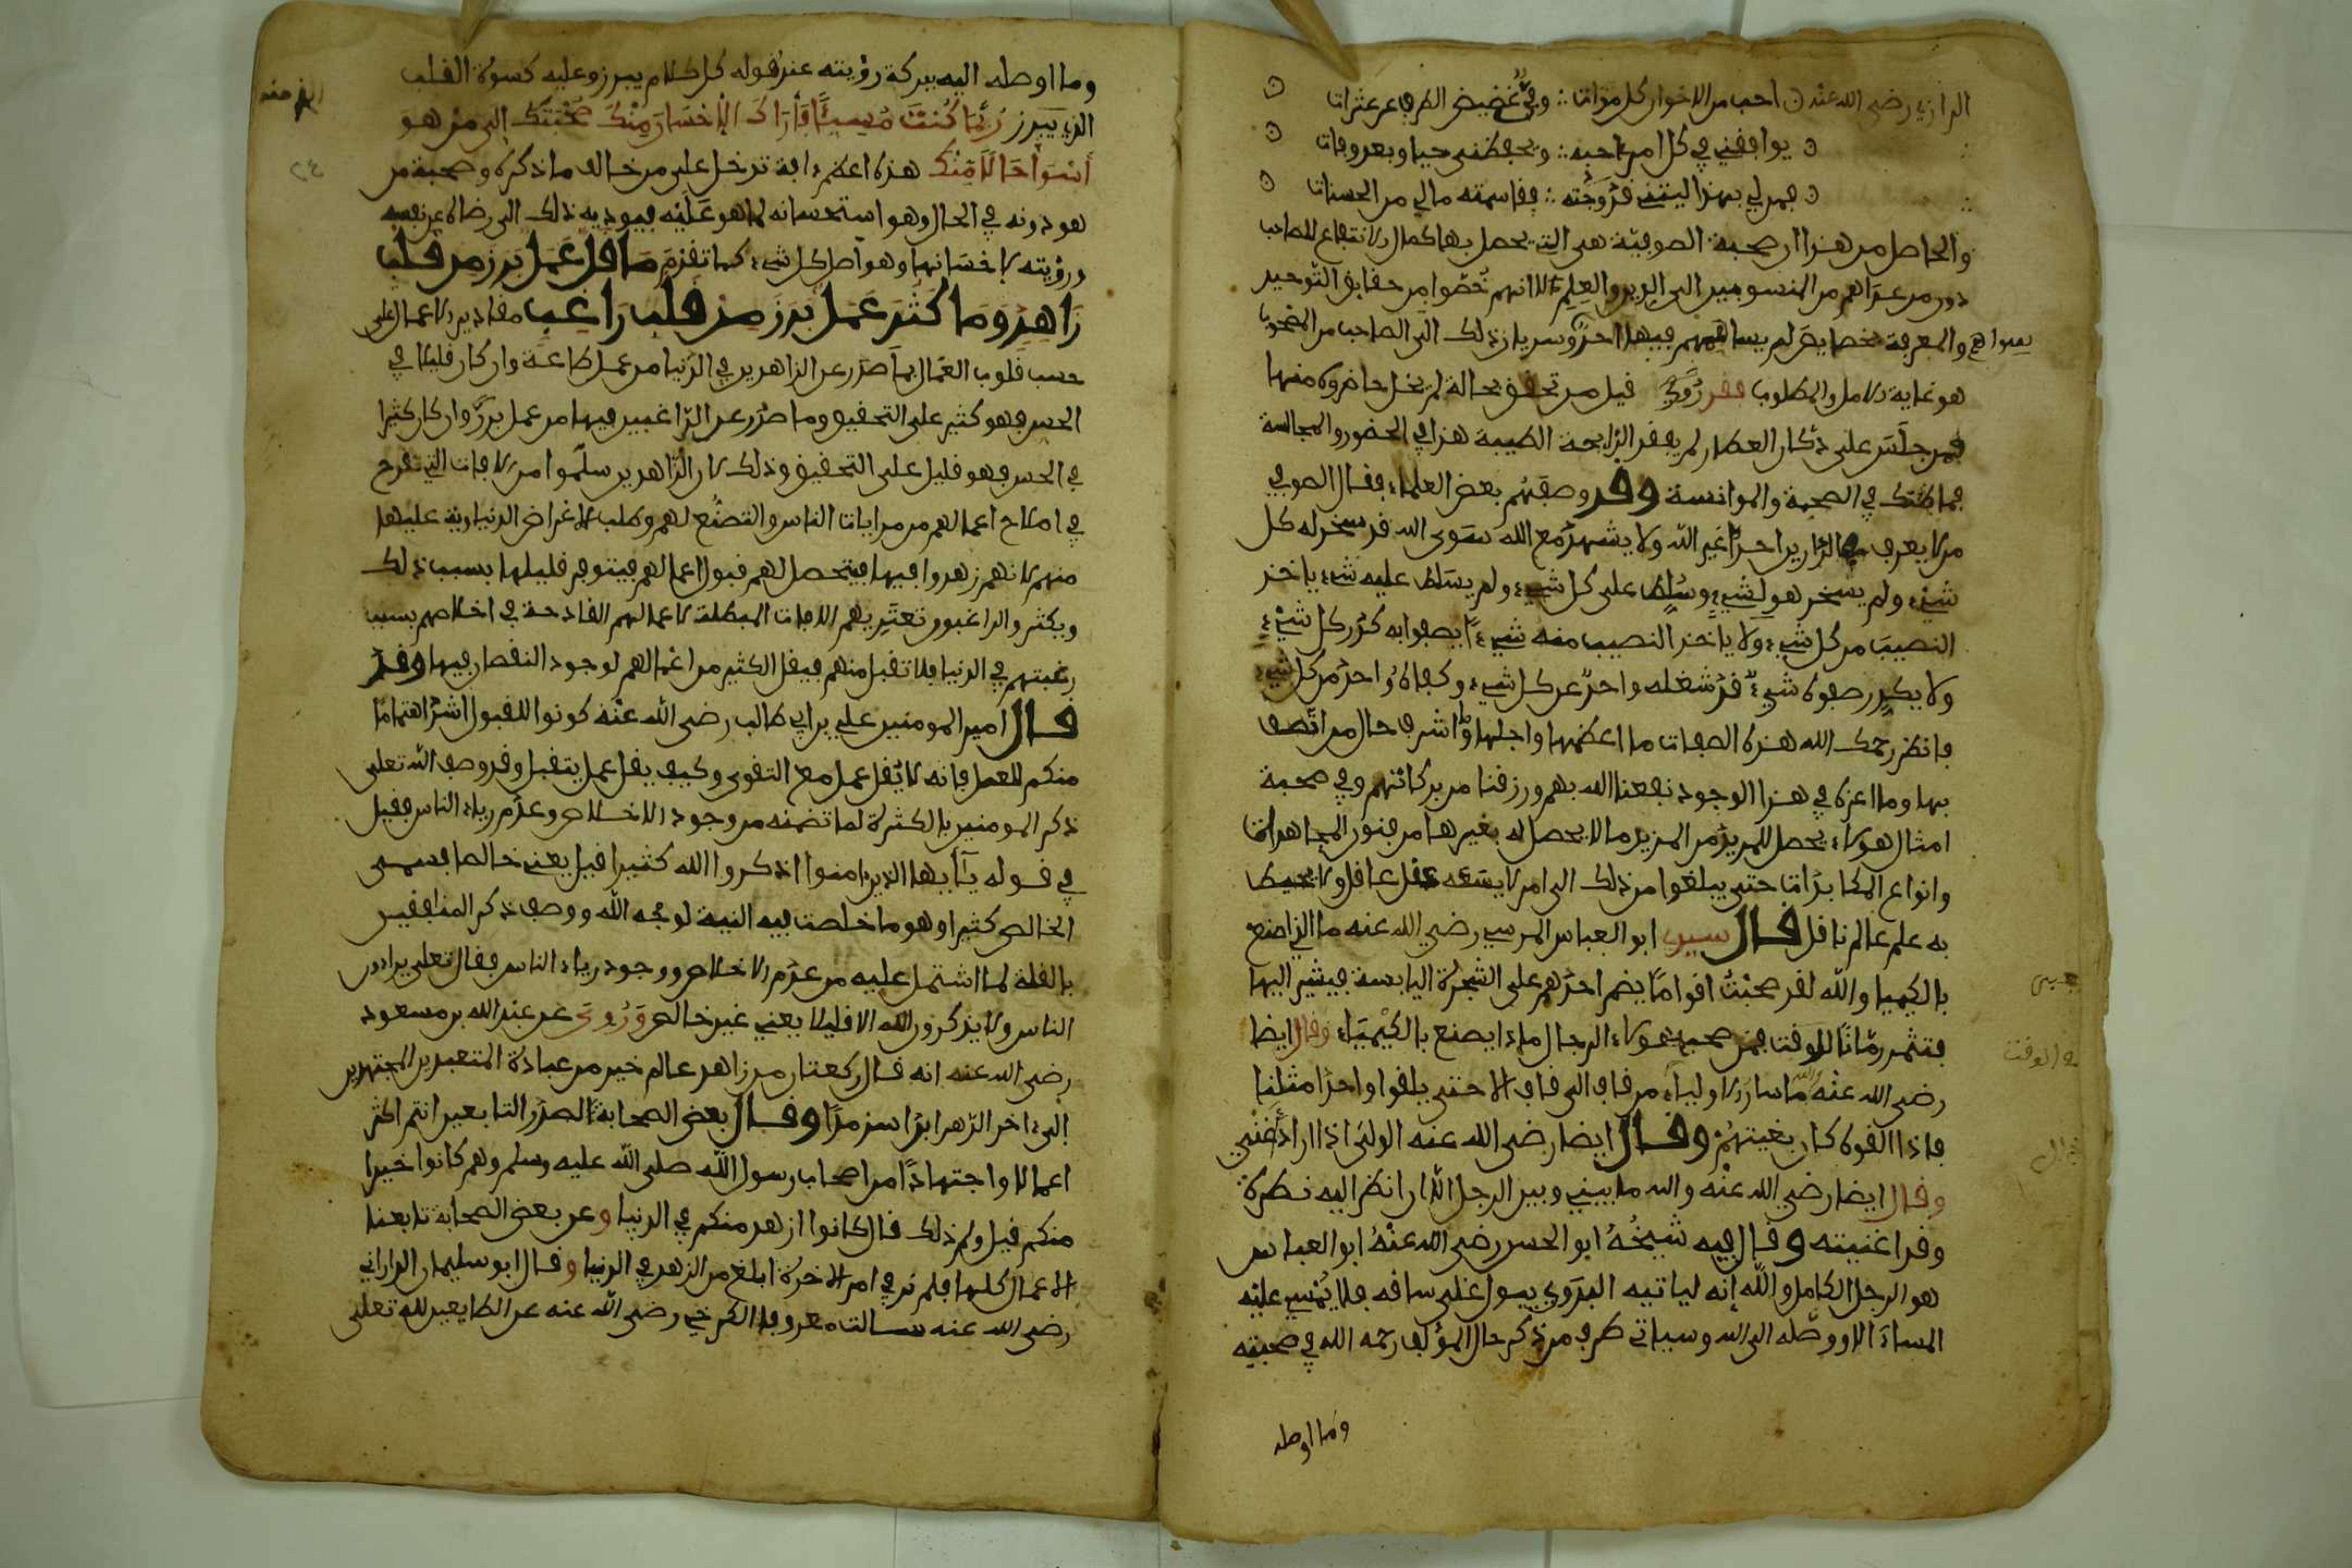 الرازي رضي الله عنه احب من الاخوان كل مواتي وفيّ غضيض الطرف عن عثراتي
يوافقني في كل امر احبه ويحفظني حيا وبعد وفاتي
فمن لي بهذا ليتني قد وجدته فقاسمته مالي من الحسنات
والحاصل من هذا ان صحبة الصوفية هي التي يحصل بها كمال الانتفاع للصاحب
دون من عداهم من المنسوبين الى الدين والعلم لانهم خصوا من حقايق التوحيد
والمعرفة بخصايص لم يساهمهم فيها احد وسريان ذلك الى الصاحب من المصحوب
هو غاية الامل والمطلوب فقد روي قيل من تحقق بحالة لم يخل حاضروه منها
فمن جلس على دكان العطار لم يفقد الرايحة الطيبة هذا في الحضور والمجالسة
فما ظنك في الصحبة والموانسة وقد وصفهم بعض العلماء فقال الصوفي
من لا يعرف في الدارين احدا غير الله ولا يشهد مع الله سوى الله قد سخر له كل
شيء ولم يسخر هو لشيء وسلط على كل شيء ولم يسلط عليه شيء ياخذ
النصيب من كل شيء ولا ياخذ النصيب منه شيء يصفوا به كدر كل شيء
ولا يكدر صفوه شيء قد شغله واحد عن كل شيء وكفاه واحد من كل شيء
فانظر رحمك الله هذه الصفات ما اعظمها واجلها واشرف حال من اتصف
بها وما اعزه في هذا الوجود نفعنا الله بهم ورزقنا من بركاتهم وفي صحبة
امثال هولاء يحصل للمريد من المزيد ما لا يحصل له بغيرها من فنون المجاهدات
وانواع المكابدات حتى يبلغوا من ذلك الى امر لا يسعه عقل عاقل ولا يحيط
به علم عالم ناقل قال سيدي ابو العباس المرسي رضي الله عنه ماالذي اصنع
بالكيميا والله لقد صحبت اقواما يمر احدهم على الشجرة اليابسة فيشير اليها
فتثمر رمانا للوقت فمن صحب هولاء الرجال ماذا يصنع بالكيمياء وقال ايضا
رضي الله عنه والله ما سار الاولياء من قاف الى قاف الا حتى يلقوا واحدا مثلنا
فاذا لقوه كان بغيتهم وقال ايضا رضي الله عنه الولي اذا اراد اغنى
وقال ايضا رضي الله عنه والله ما بيني وبين الرجل الا ان انظر اليه نظرة
وقد اغنيته وقال فيه شيخه ابو الحسن رضي الله عنه ابو العباس
هو الرجل الكامل والله إنه لياتيه البدوي يبول على ساقه فلا يمسي عليه
المساء الا ووصله الى الله وسياتي طرف من ذكر حال المؤلف رحمه الله في صحبته
وما اوصله
وما اوصله اليه ببركة رؤيته عند قوله كل كلام يبرز وعليه كسوة القلب
الذي يبرز ربما كنت مسيئا فأراك الإحسان منك صحبتك إلى من هو
أسوأ حالا منك هذه اعظم افة تدخل على من خالف ما ذكره وصحبة من
هو دونه في الحال وهو استحسانه لما هو عليه فيوديه ذلك الى رضاه عن نفسه
ورؤيته لاحسانها وهو اصل كل شيء كما تقدم ما قل عمل برز من قلب
زاهد وما كثر عمل برز من قلب راغب مقادير الاعمال على
حسب قلوب العمال فما صدر عن الزاهدين في الدنيا من عمل طاعة وان كان قليلا في
الحس فهو كثير على التحقيق وما صدر عن الراغبين فيها من عمل بر وان كان كثيرا
في الحس فهو قليل على التحقيق وذلك لان الزاهدين سلموا من الافات التي تقدح
في اخلاص اعمالهم من مراياة الناس والتصنع لهم وطلب الاغراض الدنياوية عليها
منهم لانهم زهدوا فيها فيتحصل لهم قبول اعمالهم فيتوفر قليلها بسبب ذلك
ويكثر والراغبون تعتريهم الافات المبطلة لاعمالهم القادحة في اخلاصهم بسبب
رغبتهم في الدنيا فلا تقبل منهم فيقل الكثير من اعمالهم لوجود النقصان فيها وقد
قال امير المومنين علي بن ابي طالب رضي الله عنه كونوا للقبول اشد اهتماما
منكم للعمل فانه لا يقل عمل مع التقوى وكيف يقل عمل يتقبل وقد وصف الله تعلى
ذكر المومنين بالكثرة لما تضمنه من وجود الاخلاص وعدم رياء الناس فقيل
في قوله يأايها الذين امنوا اذكروا الله كثيرا قيل يعني خالصا فسمى
الخالص كثيرا وهو ما خلصت فيه النية لوجه الله ووصف ذكر المنافقين
بالقلة لما اشتمل عليه من عدم الاخلاص ووجود رياء الناس فقال تعلى يراءون
الناس ولا يذكرون الله الا قليلا يعني غير خالص وروي عن عبد الله بن مسعود
رضي الله عنه انه قال ركعتان من زاهد عالم خير من عبادة المتعبدين المجتهدين
إلى اخر الدهر ابدا سرمدا وقال بعض الصحابة لصدر التابعين انتم اكثر
اعمالا واجتهادا من اصحاب رسول الله صلى الله عليه وسلم وهم كانوا خيرا
منكم قيل ولم ذلك قال كانوا ازهد منكم في الدنيا وعن بعض الصحابة تابعنا
الاعمال كلها فلم نر في امر الاخرة ابلغ من الزهد في الدنيا وقال ابو سليمان الداراني
رضي الله عنه سالت معروفا الكرخي رضي الله عنه عن الطايعين لله تعلى